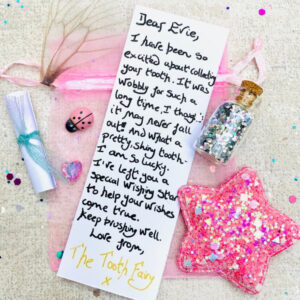 Dear Evie,
I have been so
excited about collecting
your tooth. It was
wobbly for such a
long time, I thought
it may never fall
out! And what a
pretty, shiny tooth.
I am so lucky.
I've left you a
special Wishing Star
to help your wishes
come true.
Keep brushing well.
Love from,
The Tooth Fairy
x